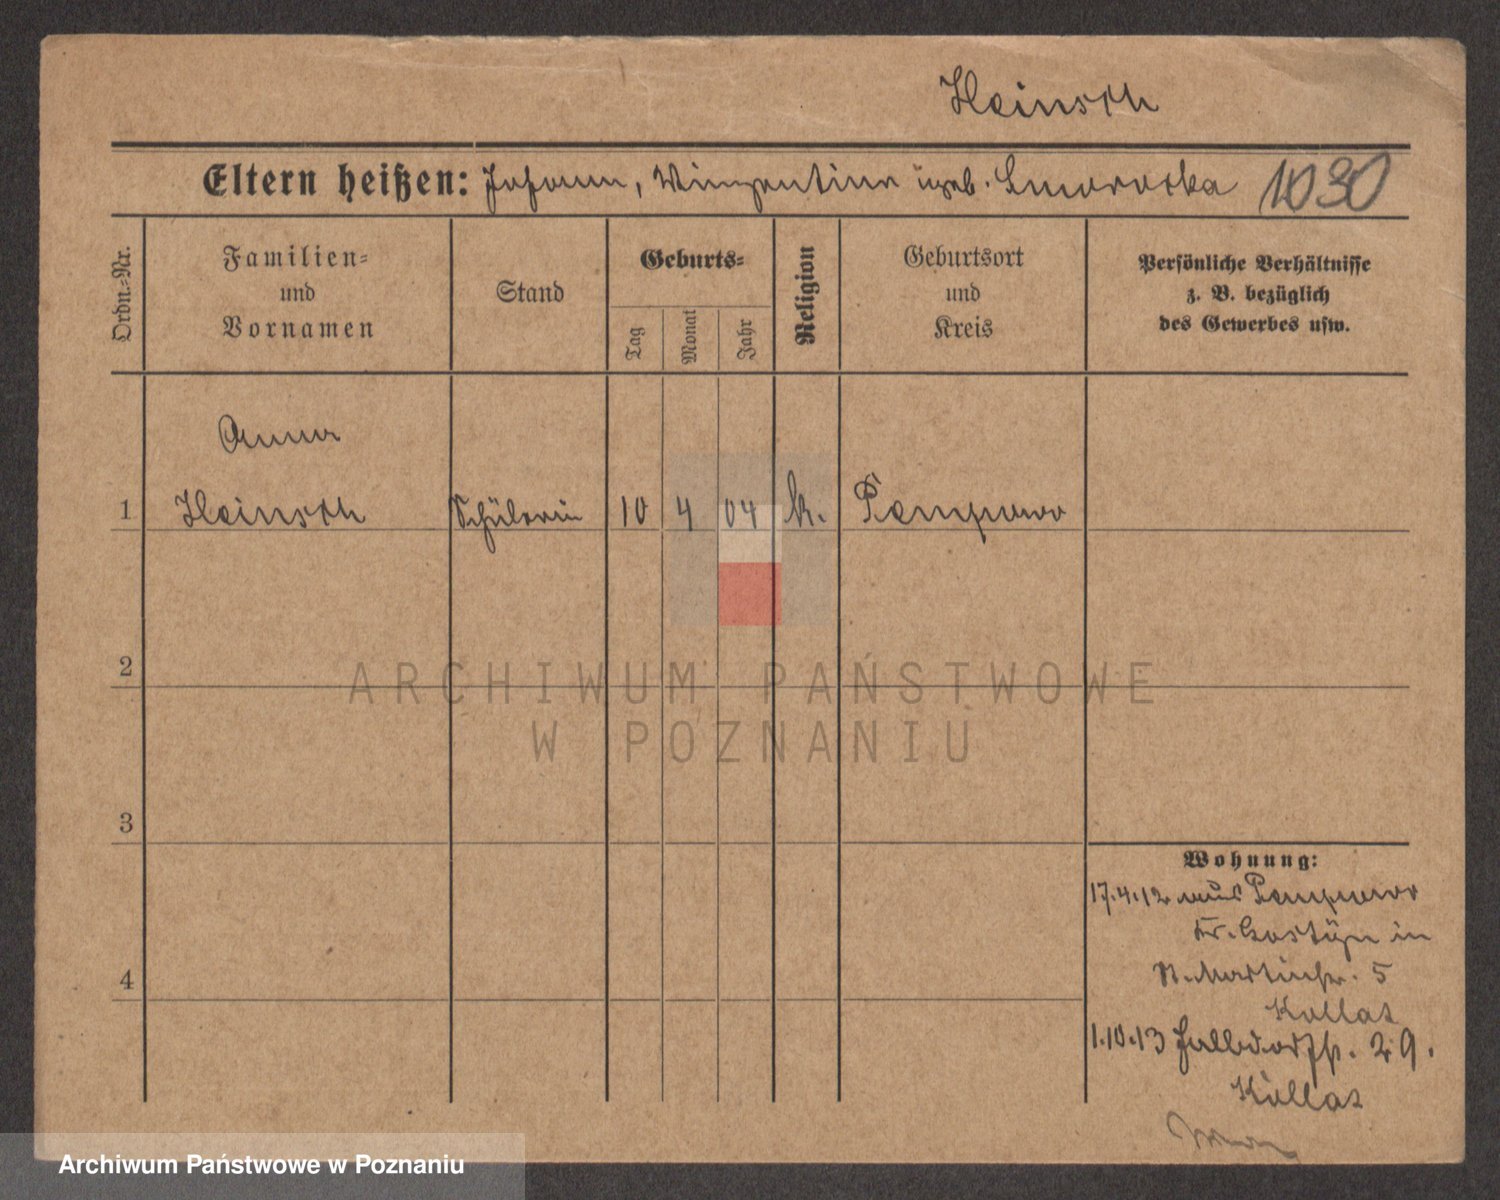 Heinsch
Eltern heißen: Johann, Winzentine geb. Smoroska 1030
Ordn.-Nr.
Familien-
und
Vornamen
Stand
Geburts-
Tag
Monat
Jahr
Religion
Geburtsort
und
Kreis
Persönliche Verhältnisse
z. B. bezüglich
des Gewerbes usw.
Anna
1 Heinsch Schülerin 10 4 04 k. Pempowo
2
3
4
Wohnung:
17.4.12 aus Pempowo
Kr. Gostyn in
St. Martinstr. 5
Kollat
1.10.13 Halbdorfstr. 29.
Kollat
ARCHIWUM PAŃSTWOWE
W POZNANIU
Archiwum Państwowe w Poznaniu